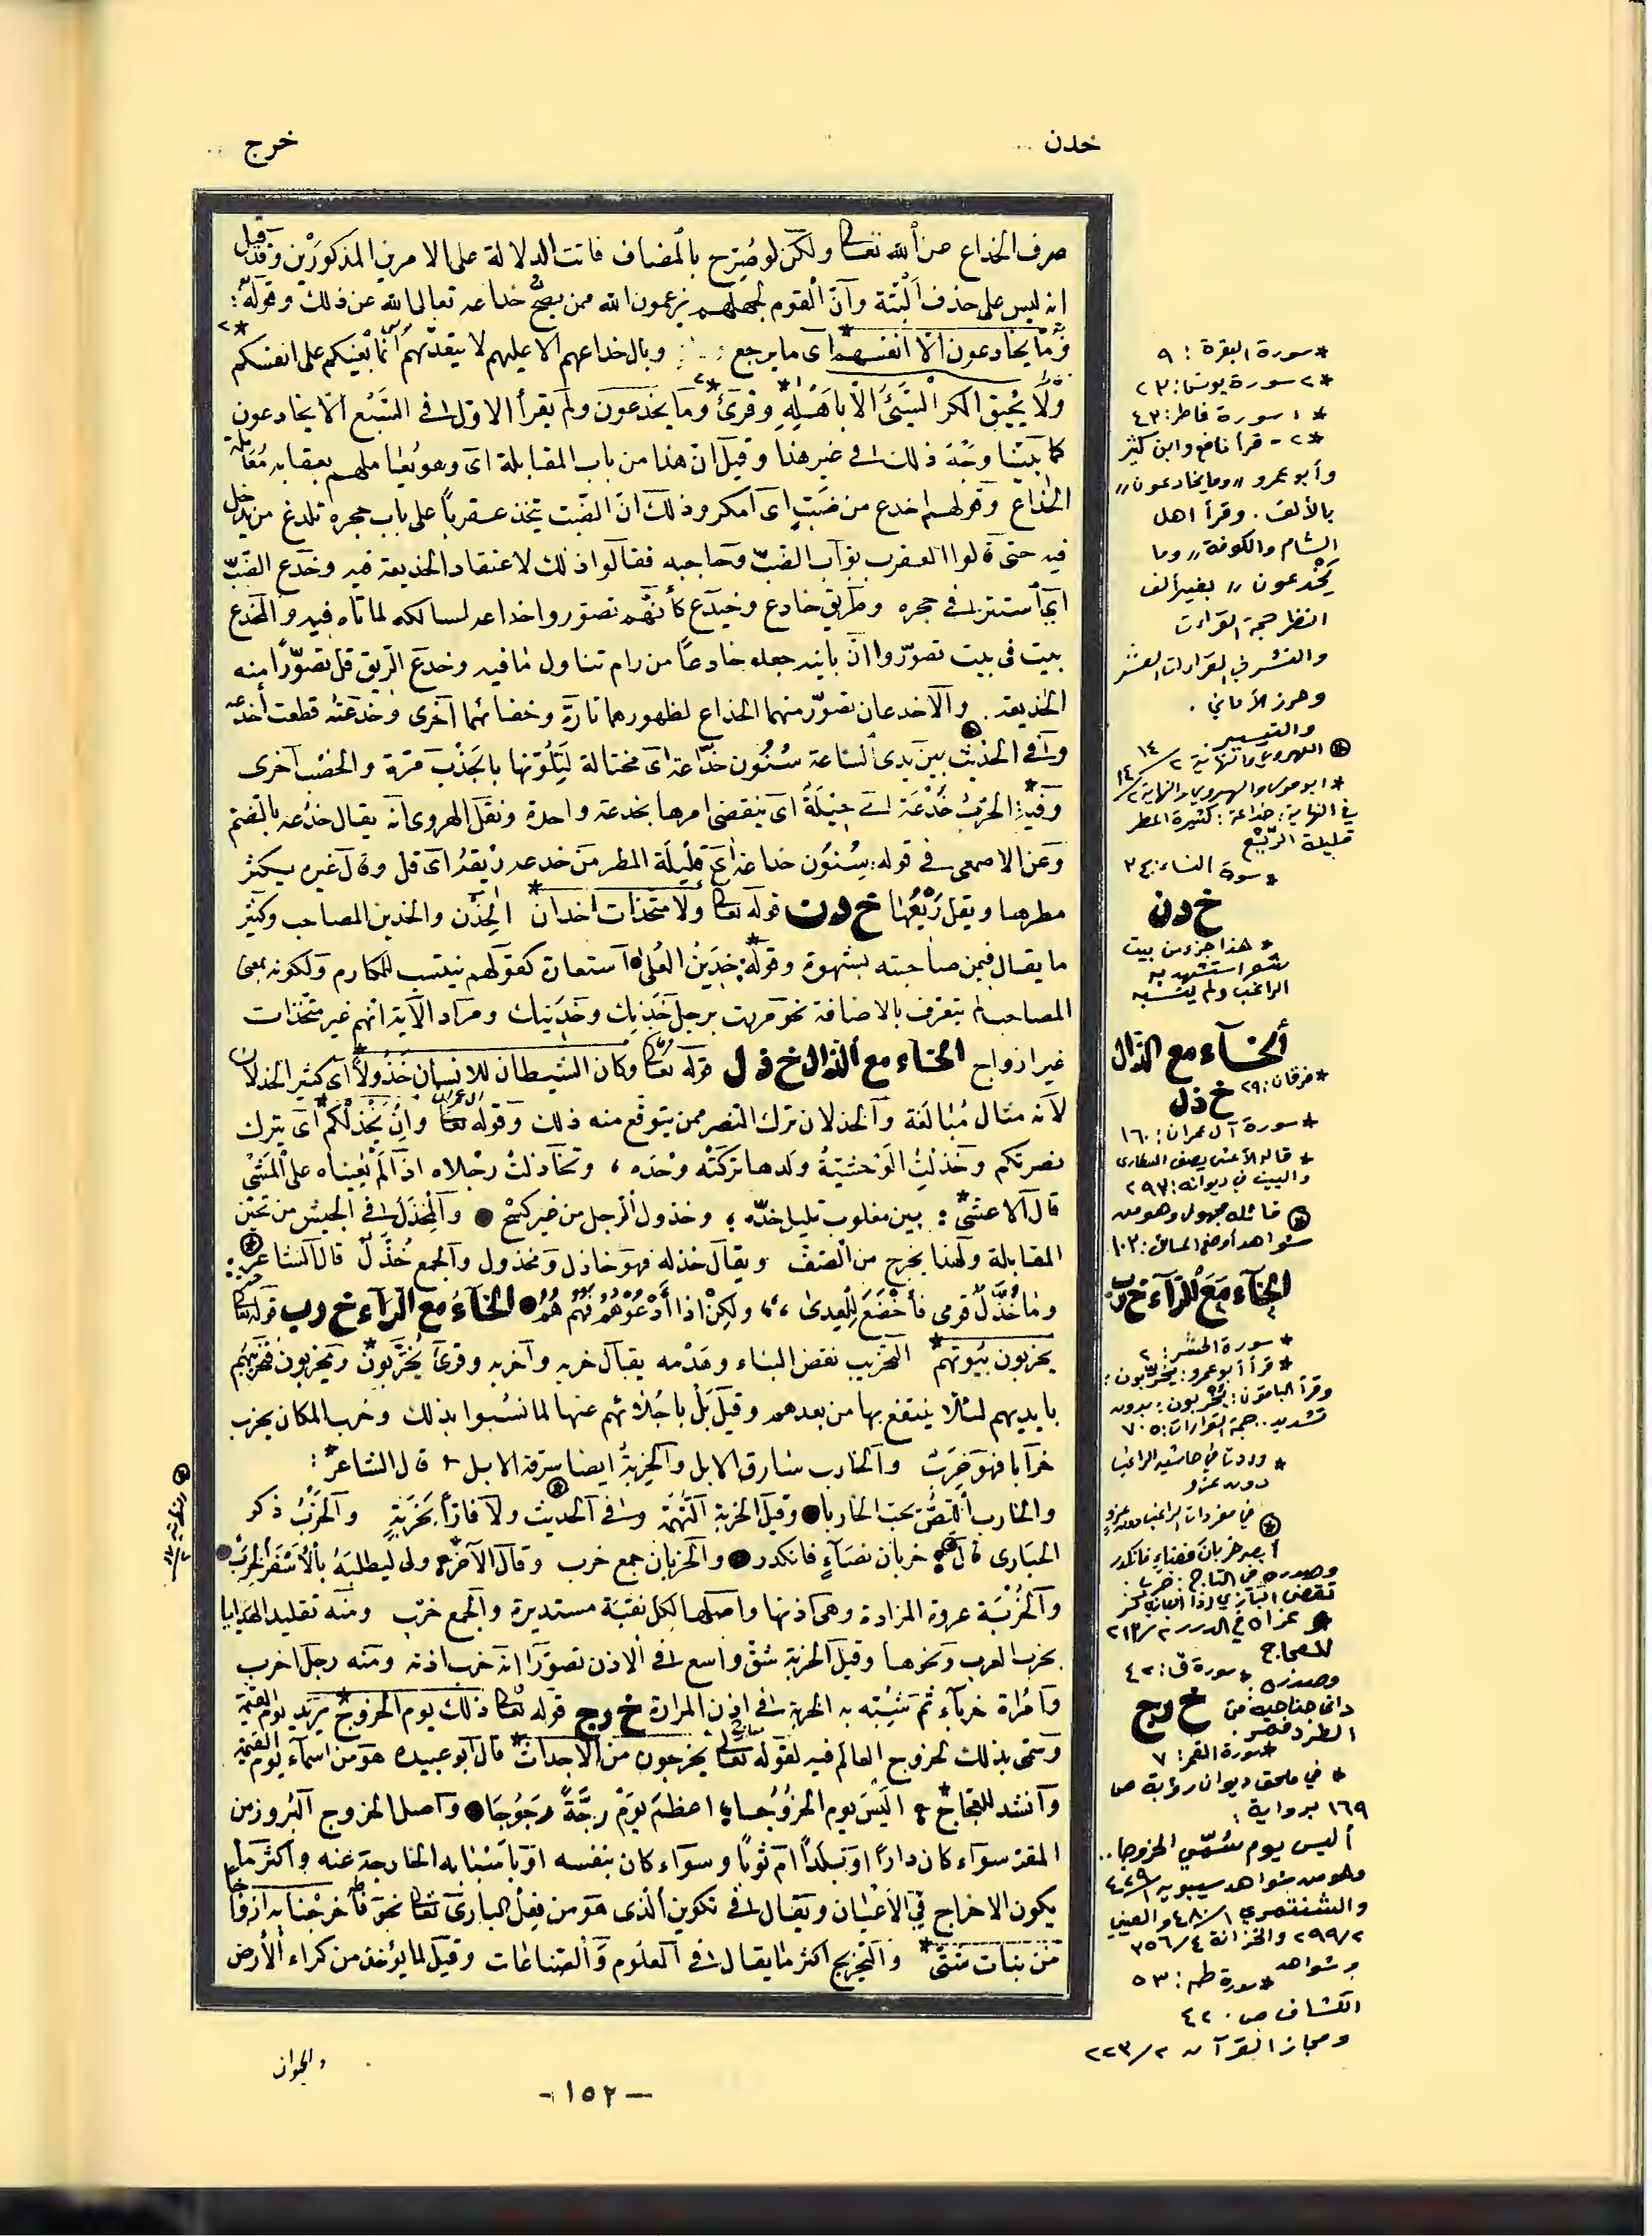 خدن
خرج
صرف الخداع عن الله تعالى ولكن لو صُرّح بالمضاف فاتت الدلالة على الامرين المذكورَيْن وقد قيل
انه ليس على حذف ألبتة وأنّ القوم لجهلهم يزعمون الله ممن يصحّ خداعه تعالى الله عن ذلك وقوله:
وَمَا يخادعون الّا انفسهم* اى ما يرجع وبال خداعهم الا عليهم لا يتعدّاهم انّما بَغْيكم على انفسكم *٢
وَلَا يُحيق المكر السَّيّئ الّا بِاَهْلِهِ *١ وقرئ وما يخدعون *٢ ولم يقرأ الاوّل في السَّبْع الّا يخادعون
كما بيّنّا وجهَ ذلك في غير هذا وقيل انّ هذا من باب المقابلة اى وهو يُعاملهم بعقابه مُعاملة
الخداع وقولهم اخدع من ضَبّ اى امكر وذلك انّ الضّب يتّخذ عقرباً على باب جحره تلدغ من يدخل
فيه حتى قالوا العقرب بوّاب الضبّ وحاجبه فقالوا ذلك لاعتقاد الخديعة فيه وخَدَع الضبّ
اى استتر في جحره وطريق خادع وخيدع كأنّهم تصوّروا خداعه لسالكه لما تاه فيه والمخدع
بيت فى بيت تصوّروا انّ بانيه جعله خادعاً من رام تناول ما فيه وخدع الرّيق قل تصوّراً منه
الخديعة. والاخدعان تصوّر منهما الخداع لظهورهما تارة وخفائهما اخرى وخدعته قطعت اخدعه
وفي الحديث بين يدى الساعة سُنُون خدّاعة اى محتالة لِتَلَوُّنها بالجَذْب مَرّة والخصب اخرى
وفيه: الحربُ خُدْعَة اى حِيلَةٌ اى ينقضى امرها بخدعة واحدة ونقل الهروى انه يقال خُدعة بالضّم
وعن الاصمعى في قوله: سُنُون خداعة اى قليلة المطر من خدع ريقُه اى قل وقال غيره يكثر
مطرها ويقل رَيْعُها خ د ن قوله تعالى ولا متّخذات اخدان* الخِدْن والخدين المصاحب وكثير
ما يقال فيمن صاحبته بشهوة وقوله: خدينُ العُلى* استعارة كقولهم نسيب المكارم ولكونه بمعنى
المصاحب لم يتعرف بالاضافة نحو مررت برجل خِدْنِك وخَدِينك ومراد الآية انهم غير متّخذات
غير ازواج الخاء مع الذال خ ذ ل قوله تعالى وكان الشيطان للانسان خَذُولاً* اى كثير الخذلان
لانه مثال مُبالَغة والخذلان ترك النّصر ممن يتوقع منه ذلك وقوله تعالى وانْ يخْذلكم* اى يترك
نصرتكم وخَذَلَتِ الوَحْشيّةُ ولدها تركَتْه وحْدَه، وتخاذلت رجْلاه اذا لم تُعيناه على المَشْى
قال الاعشى*: بين مغلوب تليل خدّه، وخذول الرِّجل من غير كَسْح ● والمِخْذَل في الجيش من تحيّن
المقابلة ولهذا يخرج من الصف ويقال خذله فهو خاذل ومخذول والجمع خُذَّل قال الشاعر:
وما خُذَّلٌ قومى فأخْضَعَ لِلْعِدىٰ،، ولكِنْ اذا أدْعُوْهُمُ فَهُمُ هُمُ● الخاء مع الراء خ ر ب قوله تعالى
يخربون بُيوتهم* التخريب نقض البناء وهَدْمه يقال خربه واخربه وقرئ يُخَرّبون* ويخربون فتخريبهم
بايديهم لئلّا ينتفع بها من بعدهم وقيل بَلْ بإجْلائهم عنها لما نُسبوا بذلك وخرب المكان يخرب
خرابا فهو خَرِبٌ والخارب سارق الابل والخِرْبةُ ايضا سرقة الابل قال الشاعر*:
والخارب اللِّصُّ يحبّ الخاربا● وقيل الخربة التُّهَمة وفي الحديث ولا فارّاً بخَرْبَةٍ والخَرَبُ ذكر
الحبارى قال خربان فضاءٍ فانكدر● والخربان جمع خرب وقال الآخر
والخُرْبَة عروة المزادة وهى اذنها واصلها لكل نقبة مستديرة والجمع خرب ومنه تقليد الهدايا
بخرب العرب ونحوها وقيل الخربة شقّ واسع في الاذن تصوّرا انّه خرب اذنه ومنه رجل اخرب
وامراة خرباء ثمّ شُبّه به الخربة في اذن المرادة خ ر ج قوله تعالى ذلك يوم الخروج* يريد يوم القيٰمة
وسمّى بذلك لخروج العالم فيه لقوله تعالى يخرجون من الاجداث* قال ابو عبيدة هو من اسماء يوم القيٰمة
وانشد للعجّاج* اليَسَ يوم الخروُجا اعظمَ يَوْمَ رجّةً رَجُوجَا● واصل الخروج البُروز من
المقرّ سوآء كان داراً او بَلداً ام ثوباً وسوآء كان بنفسه او باسْبابه الخارجة عنه واكثر ما
يكون الاخراج في الاَعْيان ويقال في تكوين الّذى هو من فِعْل البارئ تعالى نحو فاخرجْنا به ازواجا
من نبات شتّى* والتخريج اكثر ما يقال في العلوم والصّناعات وقيل لما يؤخذ من كراء الأرض
والحيوان
* سورة البقرة : ٩
*٢ سورة يونس: ٢٣
*١ سورة فاطر: ٤٣
*٢ - قرأ نافع وابن كثير
وأبو عمرو «وما يخادعون»
بالألف. وقرأ اهل
الشام والكوفة «وما
يَخْدعون» بغير ألف
انظر حجة القراءات
والنشر في القراءات العشر
وحرز الأماني .
والتيسير.
الهروى والنهاية ٢/١٤
* ابو موسى والهروى والنهاية ٢/١٤
في النهاية: خداعة: كثيرة المطر
قليلة الرَّيْع
* سورة النساء:
خ د ن
* هذا جزء من بيت
شعر استشهد به
الراغب ولم ينسبه
الخاء مع الذال
* فرقان: ٢٩
خ ذ ل
* سورة آل عمران: ١٦٠
* قاله الأعشى يصف السكارى
والبيت في ديوانه: ٢٩٧
قائله مجهول وهو من
شواهد أوضح المسالك: ١٠٢
الخاء مع الراء خ ر ب
* سورة الحشر: ٢
* قرأ أبو عمرو: يخرّبون:
وقرأ الباقون: يُخْربون: بدون
تشديد.. حجة القراءات: ٧٠٥
* وردت في حاشية الراغب
دون عزو
في مفردات الراغب دون عزو
أبصر خربان فضاءٍ فانكدر
وصدره في التاج: خرب:
تقضى البازي إذا البازي كسر
عزاه في الدرر ٢/٢١٣
للعجاج
* سورة ق: ٤٢
خ ر ج
* سورة القمر: ٧
* في ملحق ديوان رؤبة ص
١٦٩ برواية:
أليس يوم سُمّي الخروجا..
وهو من شواهد سيبويه
والشنتمري ١/٤٨٠ والعيني
٢/٢٩٩ والخزانة ٤/٣٥٦
وشواهد
* سورة طه: ٥٣
الكشاف ص ٤٢٠
ومجاز القرآن ٢/٢٢٣
-١٥٢-